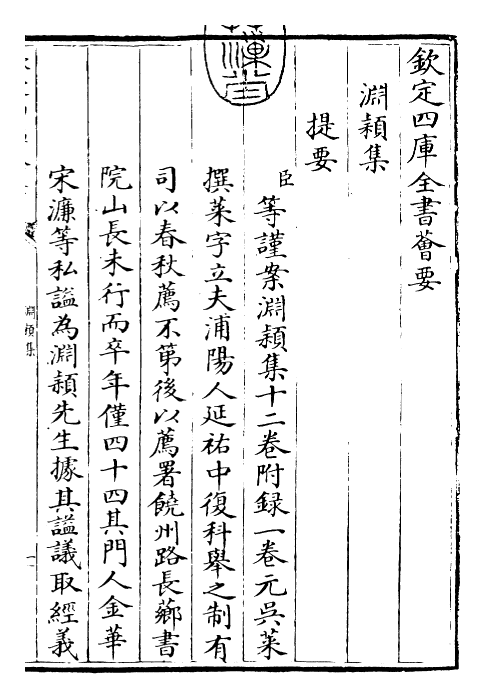 欽定四庫全書薈要
淵穎集
提要
臣等謹案淵穎集十二卷附録一卷元吳萊
撰萊字立夫浦陽人延祐中復科舉之制有
司以春秋薦不第後以薦署饒州路長薌書
院山長未行而卒年僅四十四其門人金華
宋濂等私謚為淵穎先生據其謚議取經義
淵穎集